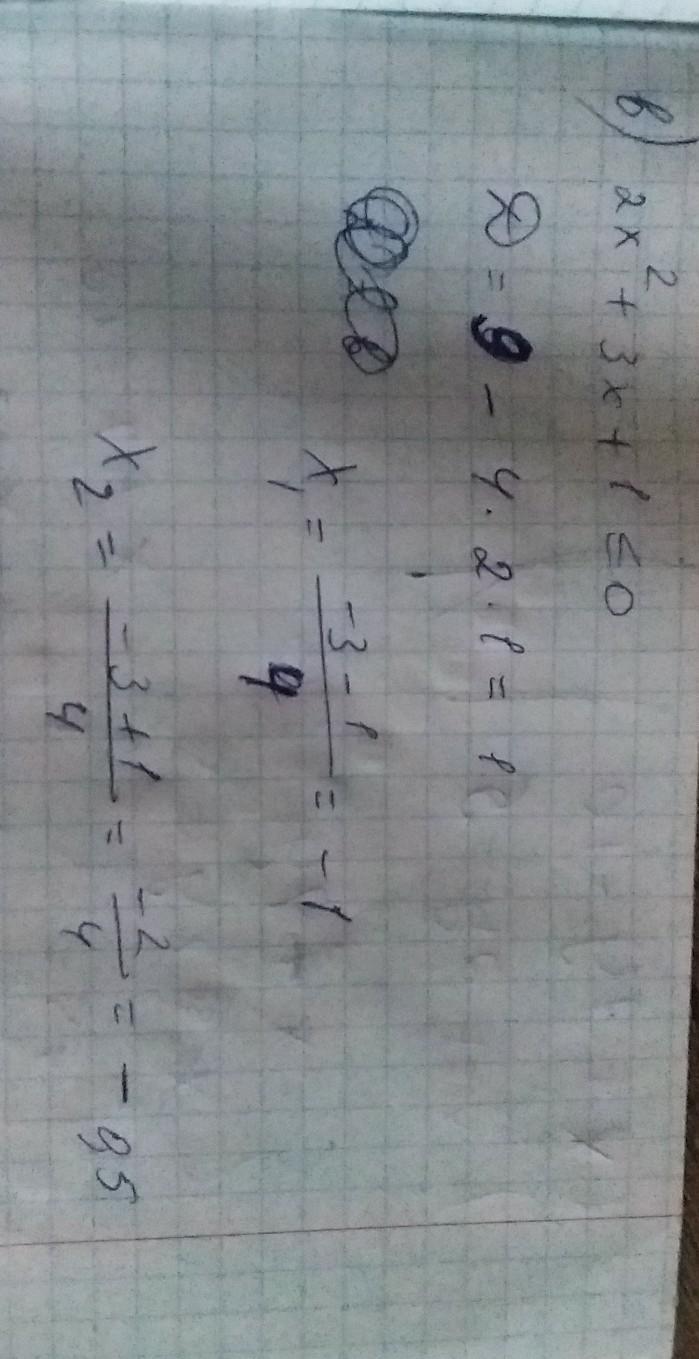 в) 2x² + 3x + 1 ≤ 0
D = 9 - 4 · 2 · 1 = 1
x₁ = (-3 - 1)/4 = -1
x₂ = (-3 + 1)/4 = -2/4 = -0,5